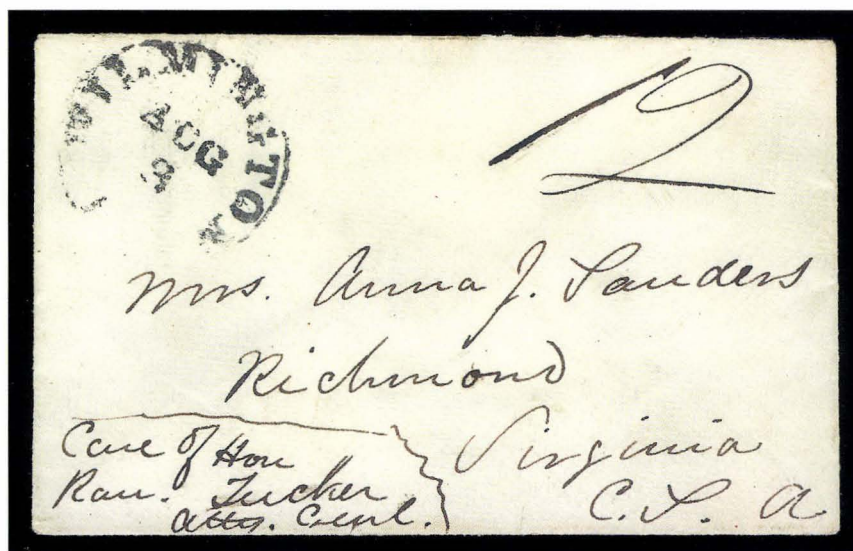 WILMINGTON
AUG
3
12
Mrs. Anna J. Sanders
Richmond
Virginia
C. S. A
Care of Hon
Ran. Tucker
Atty. Genl.